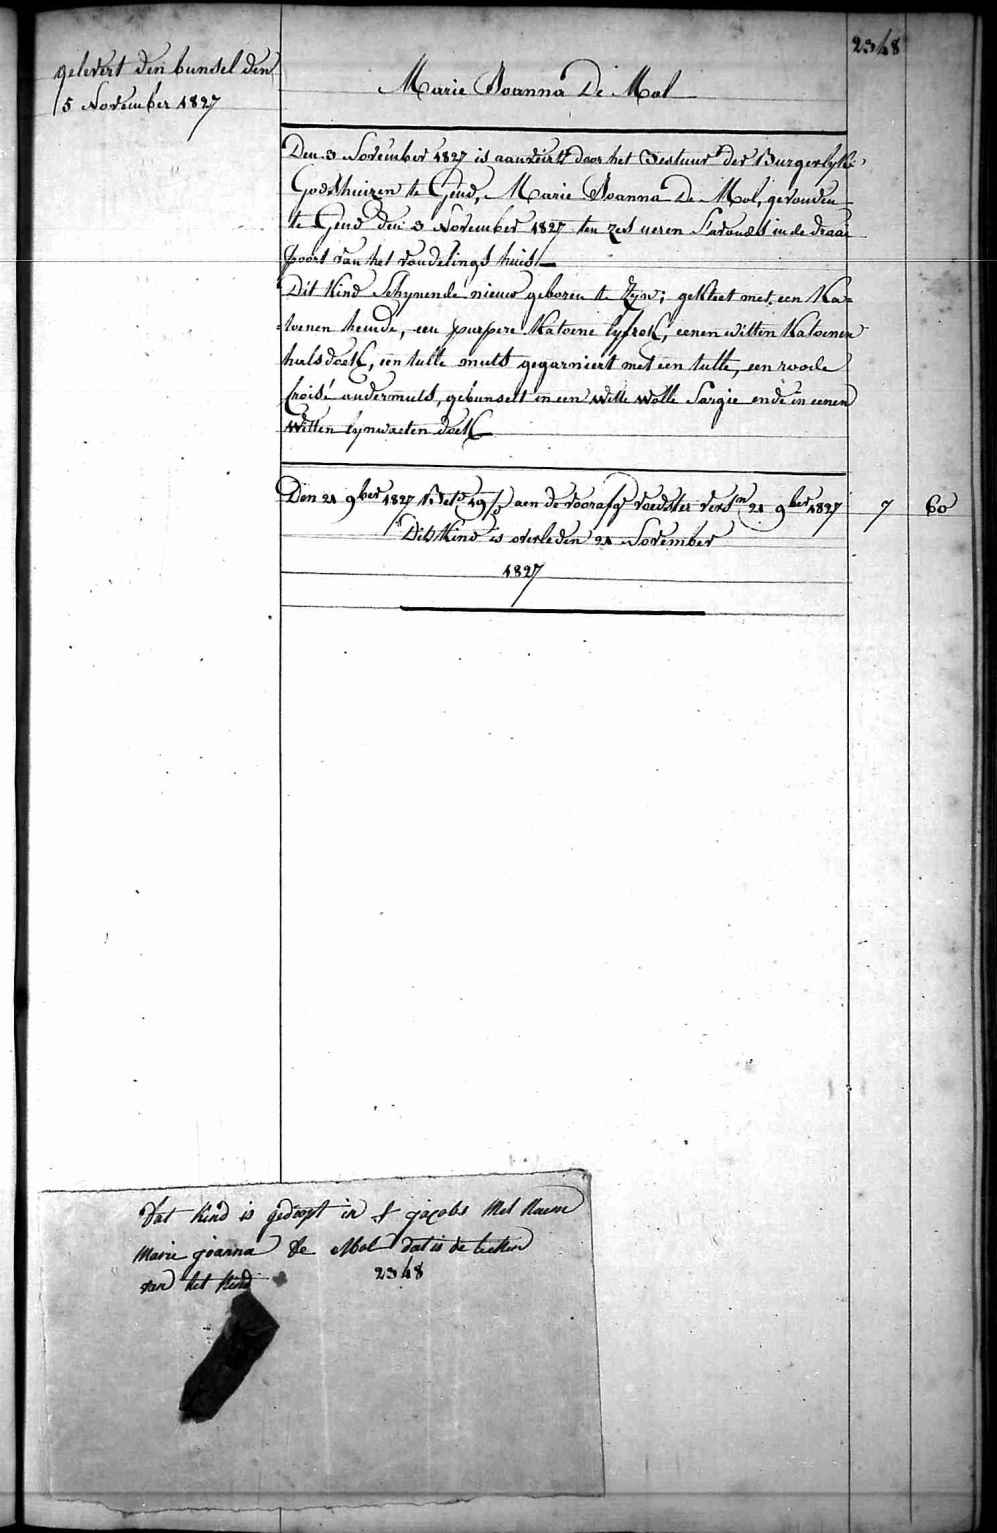 2348
gelevert den bunsel den
5 November 1827
Marie Joanna De Mol
Den 3 November 1827 is aanveirt door het Bestuur der Burgerlyke
Godshuizen te Gend, Marie Joanna De Mol, gevonden
te Gend den 3 November 1827 ten zes ueren S'avonds in de draai
poort van het vondelings huis
Dit Kind Schynende nieuw geboren te Zyn; gekleet met een Ka=
toenen hemde, een purpere Katoene lyfrok, eenen witten Katoenen
halsdoek, een tulle muts gegarniert met een tulle, een roode
Croisé andermuts, gebunselt in een Witte Wolle Sargie ende in eenen
Witten lynwaeten doek
Den 21 9ber 1827 aen de voorafg voedster 21 9ber 1827 7 60
Dit Kind is overleden 21 November
1827
dat kind is gedoopt in St jacobs Met Naeme
Marie joanna De Mol dat is de teeken
van het kind 2348